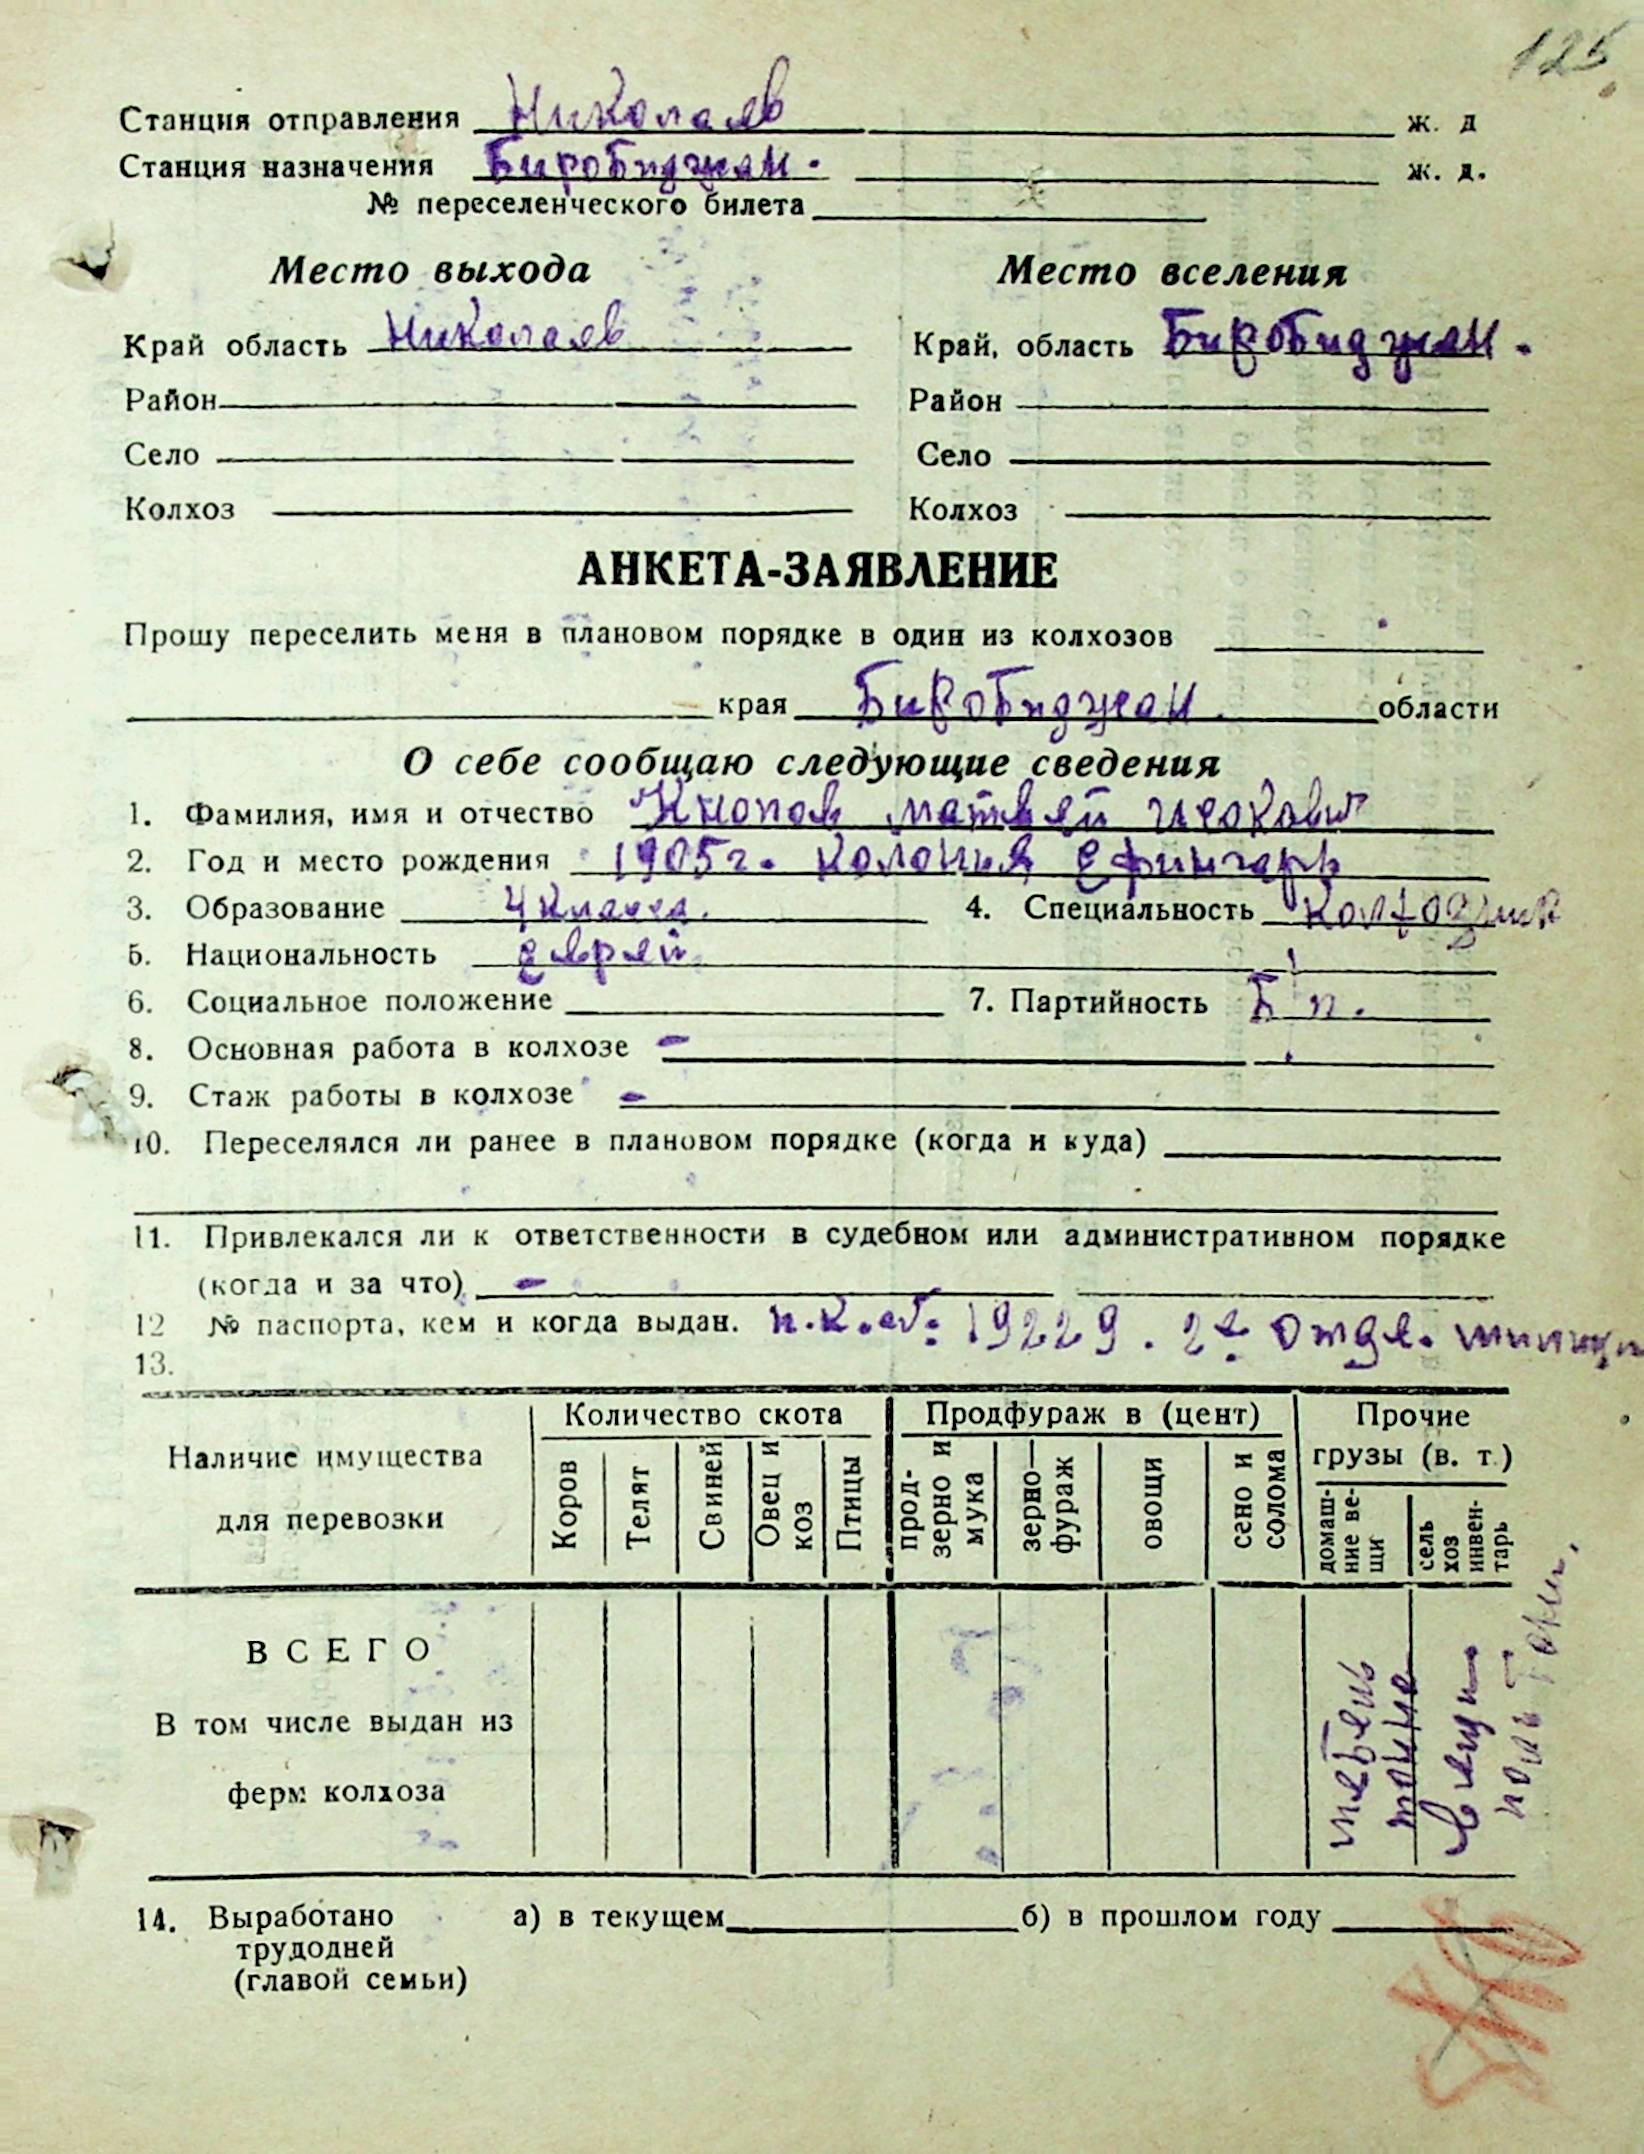 125
Станция отправления Николаев ж. д
Станция назначения Биробиджан. ж. д.
№ переселенческого билета
Место выхода Место вселения
Край область Николаев Край, область Биробиджан.
Район Район
Село Село
Колхоз Колхоз
АНКЕТА-ЗАЯВЛЕНИЕ
Прошу переселить меня в плановом порядке в один из колхозов
края Биробиджан. области
О себе сообщаю следующие сведения
1. Фамилия, имя и отчество Кнопов Матвей Исакович
2. Год и место рождения 1905г. Колония Ефингарь
3. Образование 4 класса. 4. Специальность Колхозник
5. Национальность еврей
6. Социальное положение 7. Партийность Б/п.
8. Основная работа в колхозе -
9. Стаж работы в колхозе -
10. Переселялся ли ранее в плановом порядке (когда и куда)
11. Привлекался ли к ответственности в судебном или административном порядке
(когда и за что) -
12 № паспорта, кем и когда выдан. 19229. 2е Отдел. милиции
13.
Наличие имущества для перевозки
Количество скота
Коров
Телят
Свиней
Овец и коз
Птицы
Продфураж в (цент)
прод-зерно и мука
зерно—фураж
овощи
сено и солома
Прочие грузы (в. т.)
домаш-ние ве-щи
сель хоз инвен-тарь
ВСЕГО
В том числе выдан из
ферм колхоза
мебель
тонна
вещи
поль тони.
14. Выработано а) в текущем б) в прошлом году
трудодней
(главой семьи)